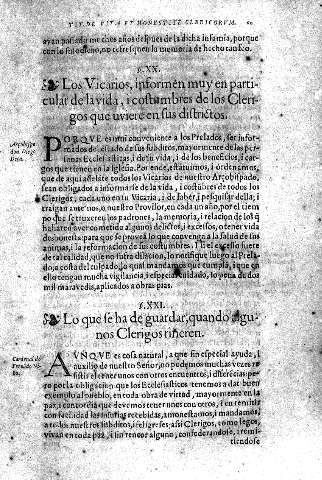 TIT. DE VITA ET HONESTATE CLERICORVM.
ayan passado muchos años despues de la dicha infamia, porque
con su loco no se refresquen la memoria de hecho
§. XX.
Los Vicarios, informen muy en parti-
cular de la vida, i costumbres de los Cleri-
gos que uviere en sus districtos.
Arçobispo
don Diego
Deça.
PORQVE es mui conveniente a los Prelados, ser infor-
mados del estado de sus subditos, mayormente de las per-
sonas Ecclesiasticas, i de su vida, i de los beneficios, i car-
gos que tienen en la Iglesia. Por ende, estatuimos, i ordenamos,
que de aqui adelante todos los Vicarios de nuestro Arçobispado,
sean obligados a informarse de la vida, i costũbres de todos los
Clerigos, cada uno en su Vicaria, i de saber, i pesquisar della; i
traigan ante nos, o nuestro Provisor, en cada un año, por el tiem-
po que se truxeren los padrones, la memoria, i relacion de los q̃
hallaren aver cometido algunos delictos, i excessos, o tener vida
deshonesta: para que se provea lo que convenga a la salud de sus
animas, i la reformacion de sus costumbres. I si el excesso fuere
de tal calidad, que no sufra dilacion, lo notifique luego al Prela-
do, a costa del culpado, lo qual mandamos que cumpla, i que en
ello tengan mucha vigilancia, i especial cuidado, so pena de dos
mil maravedis, aplicados a obras pias.
§. XXI.
Lo que se ha de guardar, quando algu-
nos Clerigos riñeren.
Cardenal don
AVNQVE es cosa natural, a que sin especial ayuda, i
auxilio de nuestro Señor, no podemos muchas vezes re-
sistir el tener unos con otros encuentros, i differencias; pe-
ro por la obligacion que los Ecclesiasticos tenemos a dar buen
exemplo al pueblo, en toda obra de virtud, mayormente en la
paz, i concordia que devemos tener unos con otros, i en remitir
con facilidad las injurias recebidas, amonestamos, i mandamos
a todos nuestros subditos, i feligreses, assi Clerigos, como legos,
vivan en toda paz, i sin rencor alguno, confederandose, i remi-
tiendose